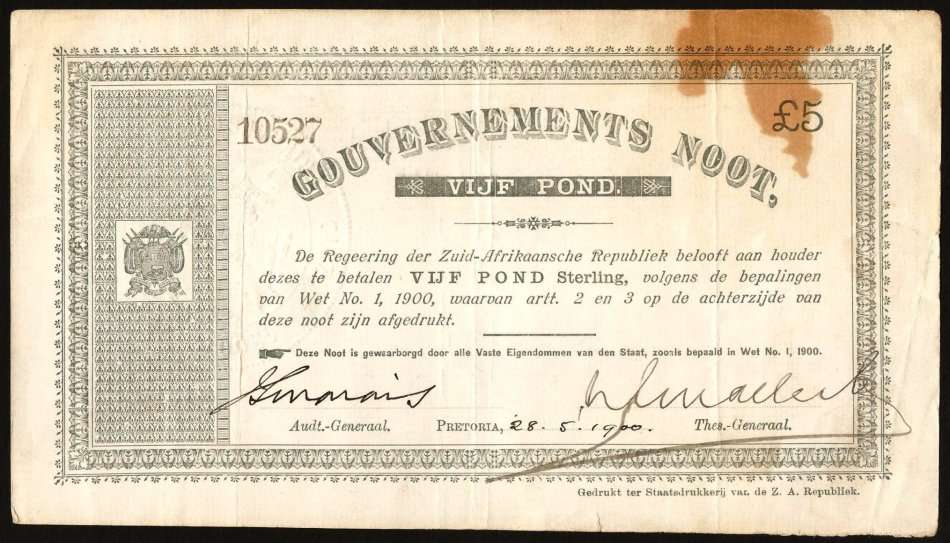 10527
£5
GOUVERNEMENTS NOOT,
VIJF POND.
De Regeering der Zuid-Afrikaansche Republiek belooft aan houder
dezes te betalen VIJF POND Sterling, volgens de bepalingen
van Wet No. 1, 1900, waarvan artt. 2 en 3 op de achterzijde van
deze noot zijn afgedrukt.
Deze Noot is gewaarborgd door alle Vaste Eigendommen van den Staat, zooals bepaald in Wet No. 1, 1900.
Audt.-Generaal. PRETORIA, 28. 5. 1900. Thes.-Generaal.
Gedrukt ter Staatsdrukkerij van de Z. A. Republiek.